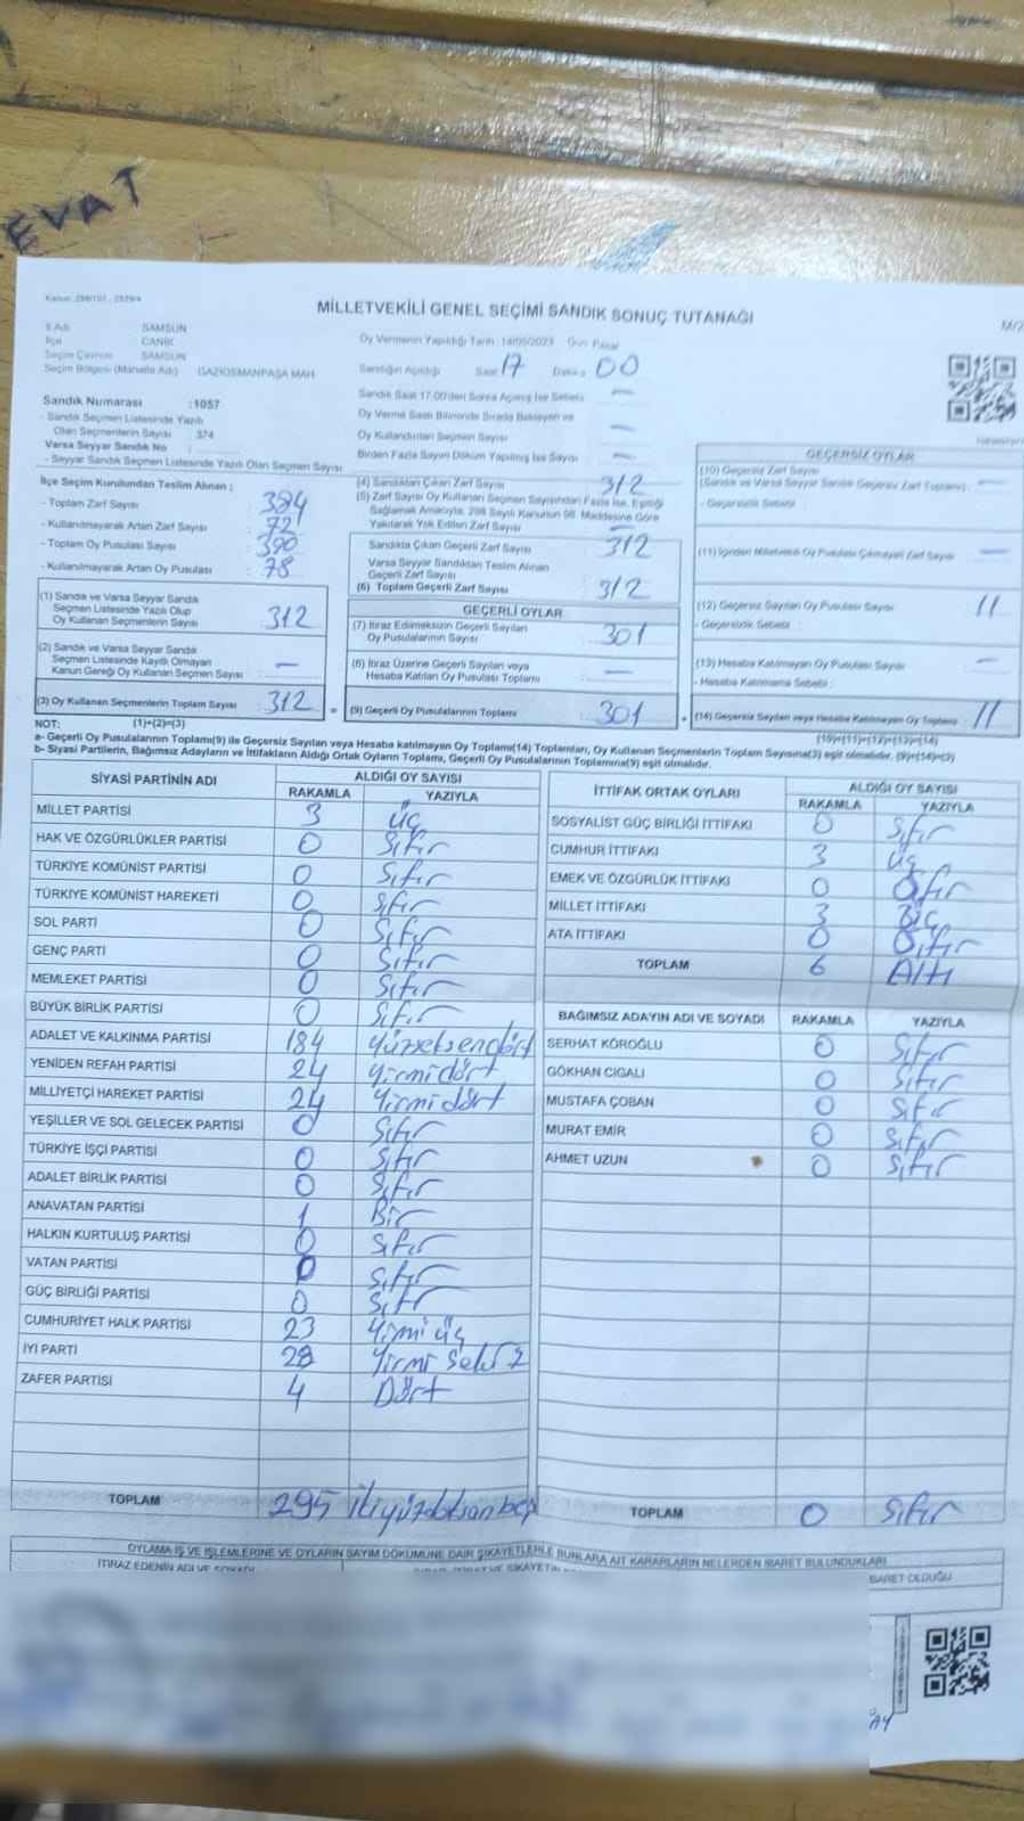 EVAT
MİLLETVEKİLİ GENEL SEÇİMİ SANDIK SONUÇ TUTANAĞI
M/2
İl Adı SAMSUN
İlçe CANİK
Seçim Çevresi SAMSUN
Seçim Bölgesi (Mahalle Adı) GAZİOSMANPAŞA MAH.
Oy Vermenin Yapıldığı Tarih : 14/05/2023 Gün Pazar
Sandığın Açıldığı Saat 17 Dakika 00
Sandık Saat 17:00'den Sonra Açılmış İse Sebebi —
Oy Verme Saati Bitiminde Sırada Bekleyen ve
Oy Kullandırılan Seçmen Sayısı —
Birden Fazla Sayım Döküm Yapılmış İse Sayısı —
Sandık Numarası : 1057
- Sandık Seçmen Listesinde Yazılı
Olan Seçmenlerin Sayısı 374
Varsa Seyyar Sandık No :
- Seyyar Sandık Seçmen Listesinde Yazılı Olan Seçmen Sayısı
İlçe Seçim Kurulundan Teslim Alınan ;
- Toplam Zarf Sayısı 384
- Kullanılmayarak Artan Zarf Sayısı 72
- Toplam Oy Pusulası Sayısı 390
- Kullanılmayarak Artan Oy Pusulası 78
(1) Sandık ve Varsa Seyyar Sandık
Seçmen Listesinde Yazılı Olup
Oy Kullanan Seçmenlerin Sayısı 312
(2) Sandık ve Varsa Seyyar Sandık
Seçmen Listesinde Kayıtlı Olmayan
Kanun Gereği Oy Kullanan Seçmen Sayısı —
(3) Oy Kullanan Seçmenlerin Toplam Sayısı 312 =
(4) Sandıktan Çıkan Zarf Sayısı 312
(5) Zarf Sayısı Oy Kullanan Seçmen Sayısından Fazla İse, Eşitliği
Sağlamak Amacıyla, 298 Sayılı Kanunun 98. Maddesine Göre
Yakılarak Yok Edilen Zarf Sayısı —
Sandıkta Çıkan Geçerli Zarf Sayısı 312
Varsa Seyyar Sandıktan Teslim Alınan
Geçerli Zarf Sayısı
(6) Toplam Geçerli Zarf Sayısı 312
GEÇERLİ OYLAR
(7) İtiraz Edilmeksizin Geçerli Sayılan
Oy Pusulalarının Sayısı 301
(8) İtiraz Üzerine Geçerli Sayılan veya
Hesaba Katılan Oy Pusulası Toplamı —
(9) Geçerli Oy Pusulalarının Toplamı 301 +
GEÇERSİZ OYLAR
(10) Geçersiz Zarf Sayısı
(Sandık ve Varsa Seyyar Sandık Geçersiz Zarf Toplamı) —
- Geçersizlik Sebebi :
(11) İçinden Milletvekili Oy Pusulası Çıkmayan Zarf Sayısı —
(12) Geçersiz Sayılan Oy Pusulası Sayısı 11
- Geçersizlik Sebebi :
(13) Hesaba Katılmayan Oy Pusulası Sayısı —
- Hesaba Katılmama Sebebi :
(14) Geçersiz Sayılan veya Hesaba Katılmayan Oy Toplamı 11
NOT: (1)+(2)=(3) (10)+(11)+(12)+(13)=(14)
a- Geçerli Oy Pusulalarının Toplamı(9) ile Geçersiz Sayılan veya Hesaba katılmayan Oy Toplamı(14) Toplamları, Oy Kullanan Seçmenlerin Toplam Sayısına(3) eşit olmalıdır. (9)+(14)=(3)
b- Siyasi Partilerin, Bağımsız Adayların ve İttifakların Aldığı Ortak Oyların Toplamı, Geçerli Oy Pusulalarının Toplamına(9) eşit olmalıdır.
SİYASİ PARTİNİN ADI ALDIĞI OY SAYISI
RAKAMLA YAZIYLA
MİLLET PARTİSİ 3 üç
HAK VE ÖZGÜRLÜKLER PARTİSİ 0 Sıfır
TÜRKİYE KOMÜNİST PARTİSİ 0 Sıfır
TÜRKİYE KOMÜNİST HAREKETİ 0 Sıfır
SOL PARTİ 0 Sıfır
GENÇ PARTİ 0 Sıfır
MEMLEKET PARTİSİ 0 Sıfır
BÜYÜK BİRLİK PARTİSİ 0 Sıfır
ADALET VE KALKINMA PARTİSİ 184 Yüzseksendört
YENİDEN REFAH PARTİSİ 24 Yirmidört
MİLLİYETÇİ HAREKET PARTİSİ 24 Yirmidört
YEŞİLLER VE SOL GELECEK PARTİSİ 0 Sıfır
TÜRKİYE İŞÇİ PARTİSİ 0 Sıfır
ADALET BİRLİK PARTİSİ 0 Sıfır
ANAVATAN PARTİSİ 1 Bir
HALKIN KURTULUŞ PARTİSİ 0 Sıfır
VATAN PARTİSİ 0 Sıfır
GÜÇ BİRLİĞİ PARTİSİ 0 Sıfır
CUMHURİYET HALK PARTİSİ 23 Yirmi üç
İYİ PARTİ 28 Yirmi Sekiz
ZAFER PARTİSİ 4 Dört
TOPLAM 295 ikiyüzdoksanbeş
İTTİFAK ORTAK OYLARI ALDIĞI OY SAYISI
RAKAMLA YAZIYLA
SOSYALİST GÜÇ BİRLİĞİ İTTİFAKI 0 Sıfır
CUMHUR İTTİFAKI 3 üç
EMEK VE ÖZGÜRLÜK İTTİFAKI 0 Sıfır
MİLLET İTTİFAKI 3 üç
ATA İTTİFAKI 0 Sıfır
TOPLAM 6 Altı
BAĞIMSIZ ADAYIN ADI VE SOYADI RAKAMLA YAZIYLA
SERHAT KÖROĞLU 0 Sıfır
GÖKHAN CIGALI 0 Sıfır
MUSTAFA ÇOBAN 0 Sıfır
MURAT EMİR 0 Sıfır
AHMET UZUN 0 Sıfır
TOPLAM 0 Sıfır
OYLAMA İŞ VE İŞLEMLERİNE VE OYLARIN SAYIM DÖKÜMÜNE DAİR ŞİKAYETLERLE BUNLARA AİT KARARLARIN NELERDEN İBARET BULUNDUKLARI
İTİRAZ EDENİN ADI VE SOYADI